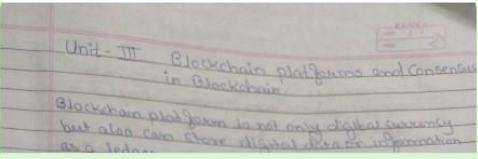 Unit - III Blockchain platforms and Consensus
in Blockchain
Blockchain platform is not only digital currency
but also can store digital data or information
as a